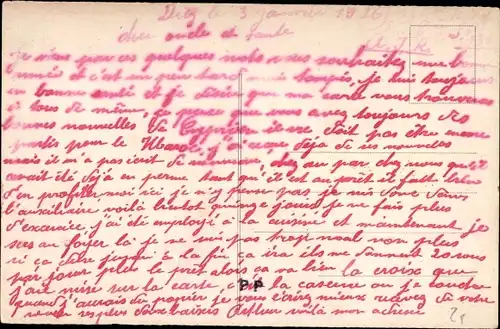 Diez le 3 janvier 1926
cher oncle et tante
Je viens par ces quelques mots vous souhaiter une bonne
année et c'est un peu tard mais tanpis, je suis toujours
en bonne santé et je désire que ma carte vous trouve
à tous de même, je pense que vous avez toujours des
bonnes nouvelles de Cyprien il ne doit pas être encore
partis pour le Maroc, j'ai eu déja de ses nouvelles
mais il m'a pas écrit de nouveau, chez
avait été déjà en perme tant qu'il est au prêt il faut bien
d'en profiter moi ici je n'y pense pas je suis donc dans
l'auxiliaire voilà bientot quinze jours je ne fais plus
d'exercice, j'ai été employé à la cuisine et maintenant je
sers au foyer là je ne suis pas trop mal non plus
si ça dure jusqu'à la fin ça ira ils me donnent 20 sous
par jour plus le prêt alors ça va bien la croix que
j'ai mise sur la carte, c'est la caserne ou je couche
quand j'aurais du papier je vous écrirez mieux recevez de votre
neveu ses plus doux baisers Arthur voilà mon adresse
P.P